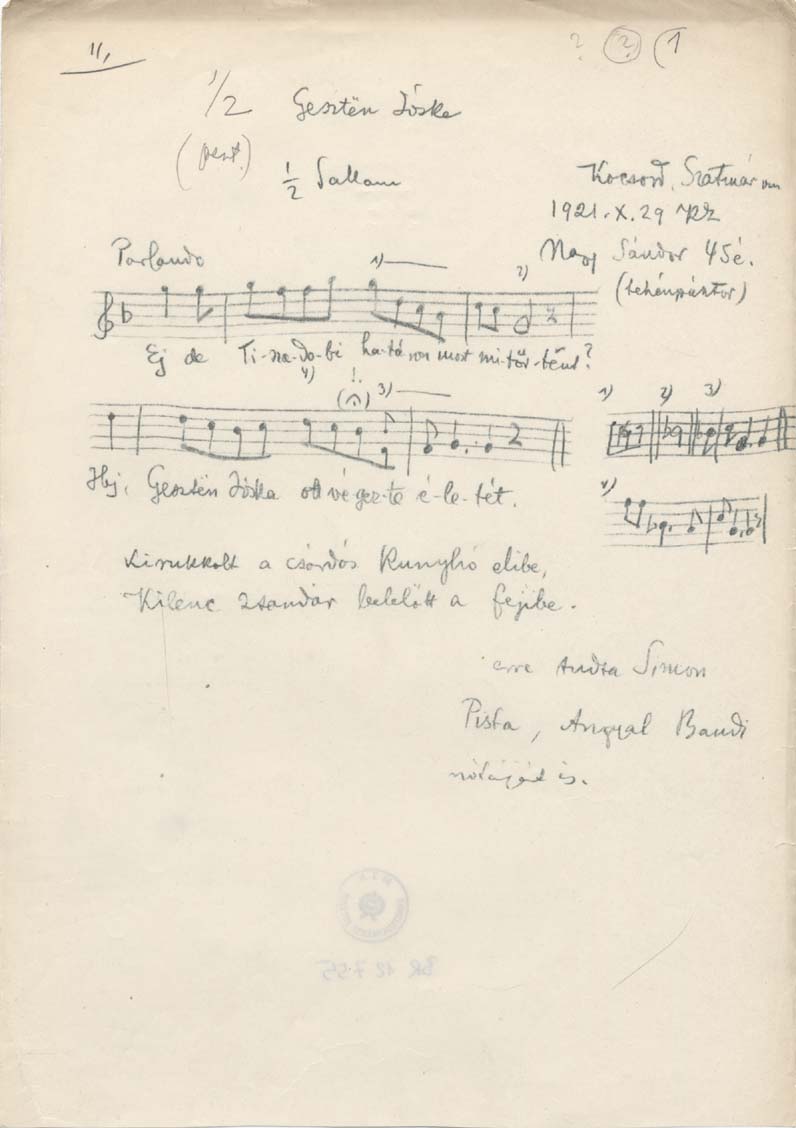 11,
? (2) (1
1/2 Gesztën Jóska
(pent.)
1/2 Dallam
Kocsord, Szatmár vm
1921. X. 29
Nagy Sándor 45é.
(tehénpásztor)
Parlando
1) 2)
Ej de Ti-sza-do-bi ha-tá-ron most mi-tőr-tént?
4) !. 3)
1) 2) 3)
Hej, Gesztën Jóska ott vé-gez-te é-le-tét.
4)
Kirukkolt a csárdás kunyhó elibe,
Kilenc zsandár belelőtt a fejibe.
erre tudta Simon
Pista, Angyal Bandi
nótáját is.
BR 12755